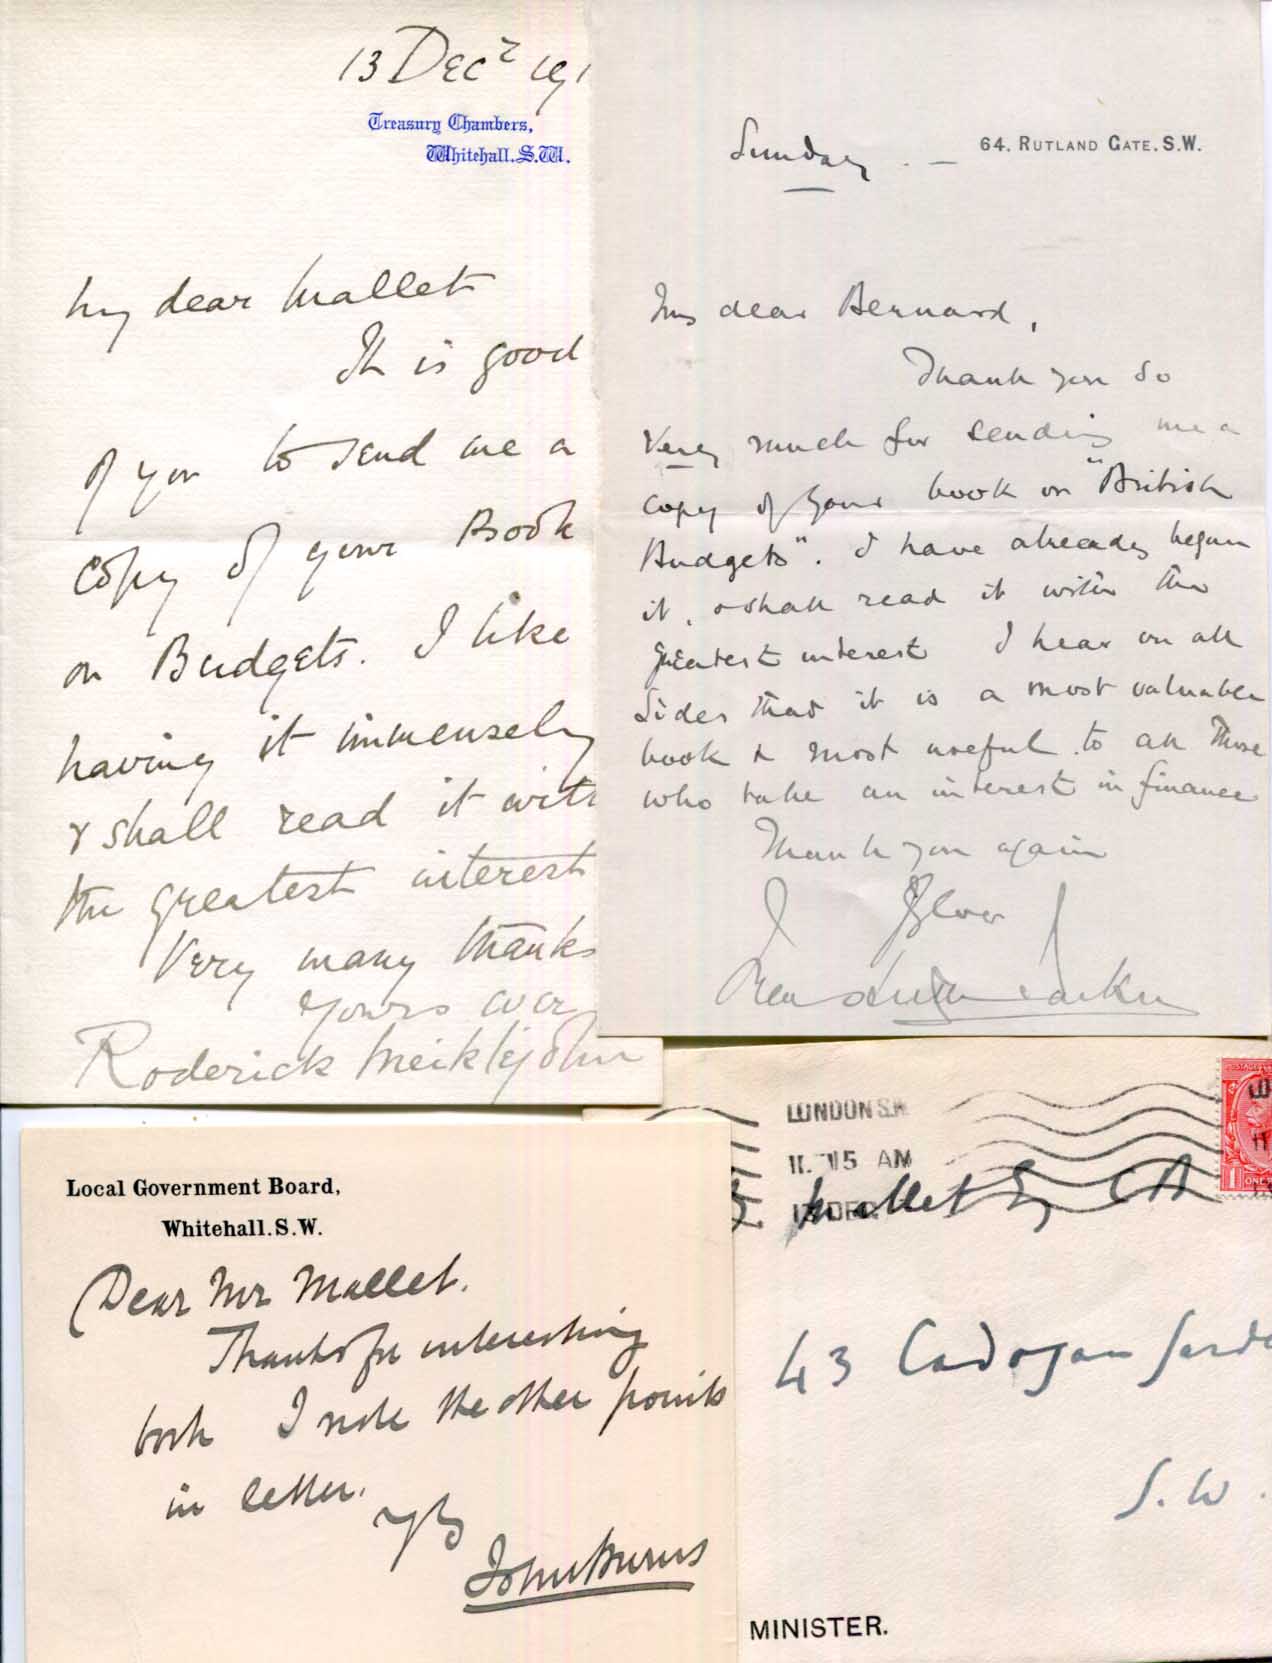 13 Decr 191
Treasury Chambers,
Whitehall. S.W.
My dear Mallet
It is good
of you to send me a
copy of your Book
on Budgets. I like
having it immensely
& shall read it with
the greatest interest
Very many thanks
Yours ever
Roderick Meiklejohn
Sunday
64, RUTLAND GATE. S.W.
My dear Bernard,
Thank you so
very much for sending me a
copy of your book on "British
Budgets". I have already begun
it, & shall read it with the
greatest interest I hear on all
sides that it is a most valuable
book & most useful to all those
who take an interest in finance
Thank you again
Local Government Board,
Whitehall. S.W.
Dear Mr Mallet.
Thanks for interesting
book I note the other points
in letter.
John Burns
LONDON S.W.
11.15 AM
13 DEC
Mallet Esq CB
43 Cadogan Garde
S.W.
MINISTER.